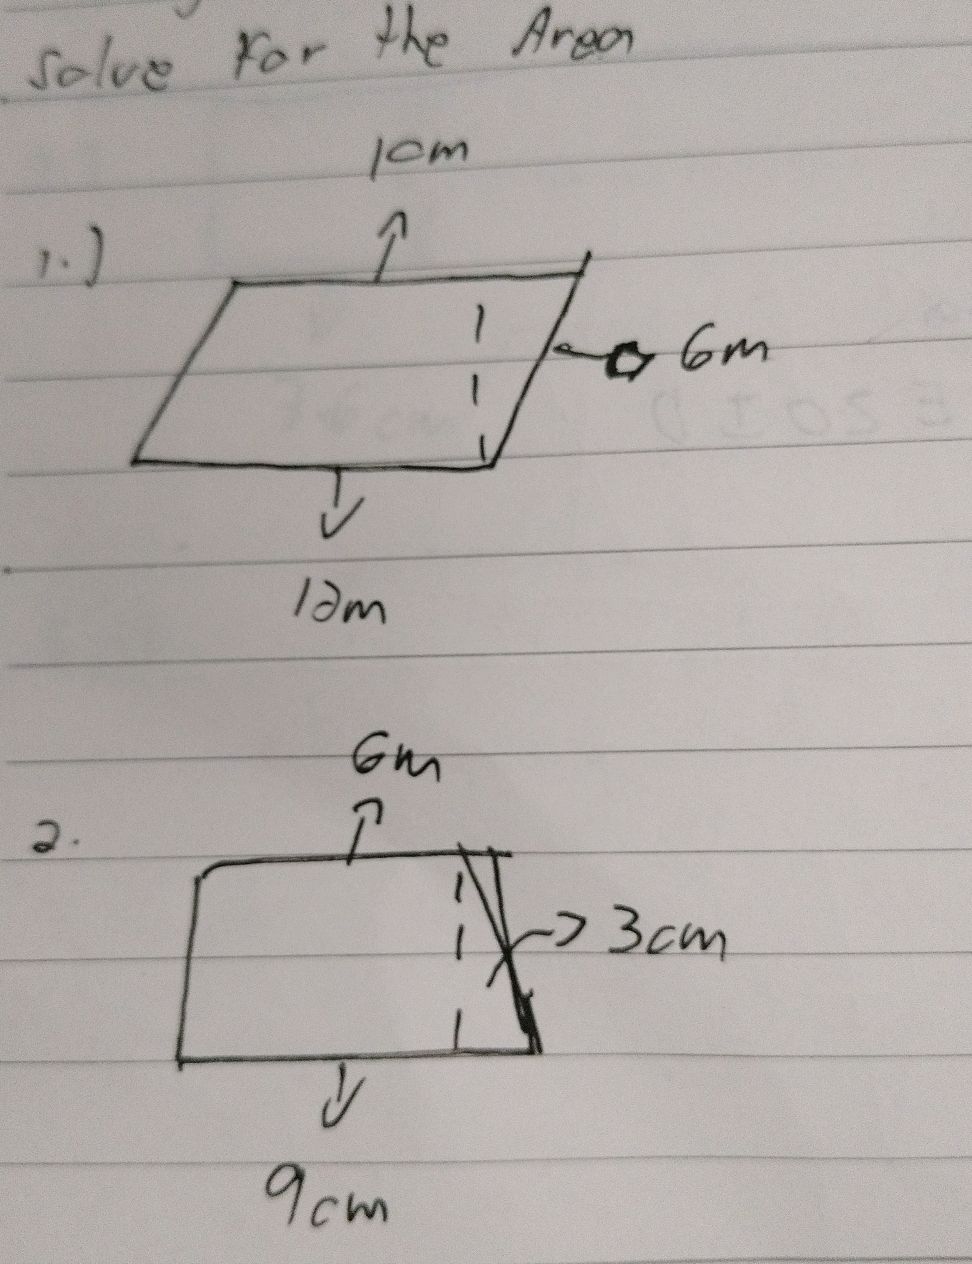 Solve For the Area
10m
1.)
6m
12m
6m
2.
3cm
9cm